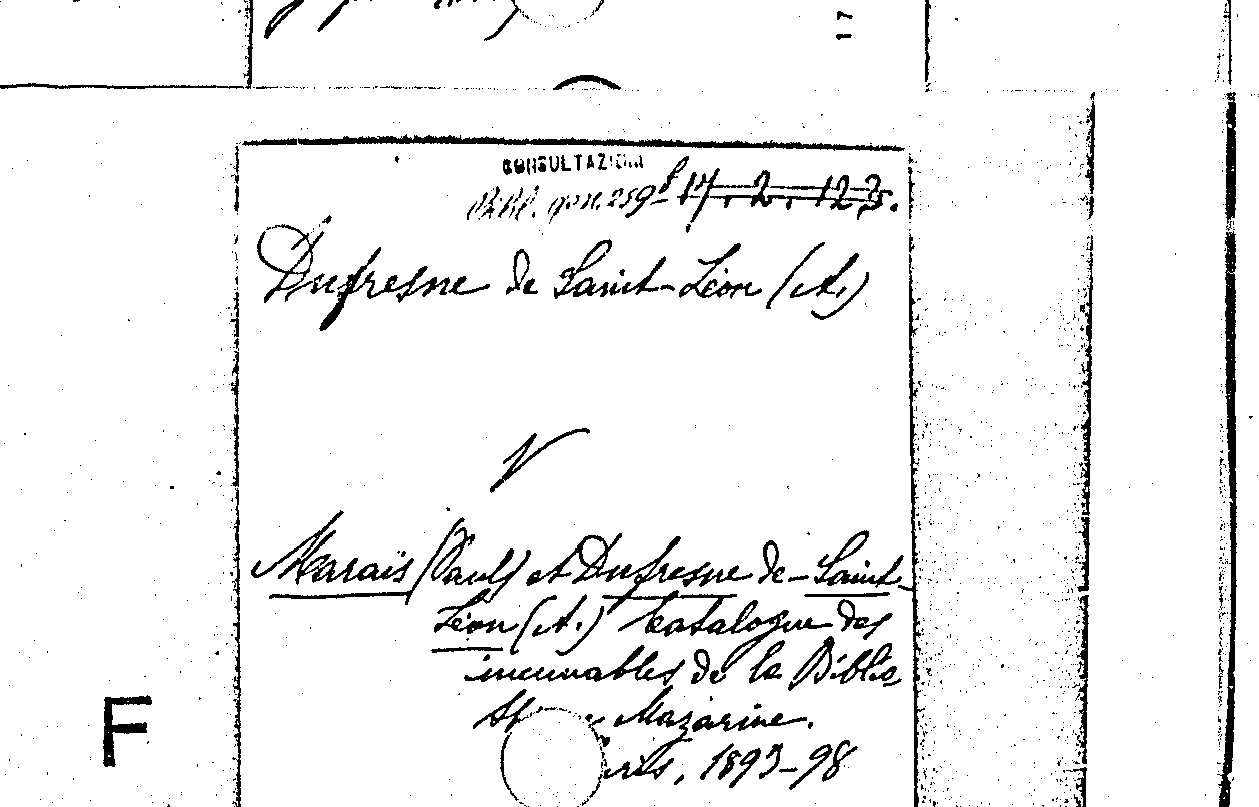 17
CONSULTAZIONI
Bibl. gen. 259 f 17.2.123.
Dufresne de Saint-Léon (A.)
V
Marais (Paul) et Dufresne de-Saint-
Léon (A.) Catalogue des
incunables de la Biblio
Mazarine.
Paris, 1893-98
F